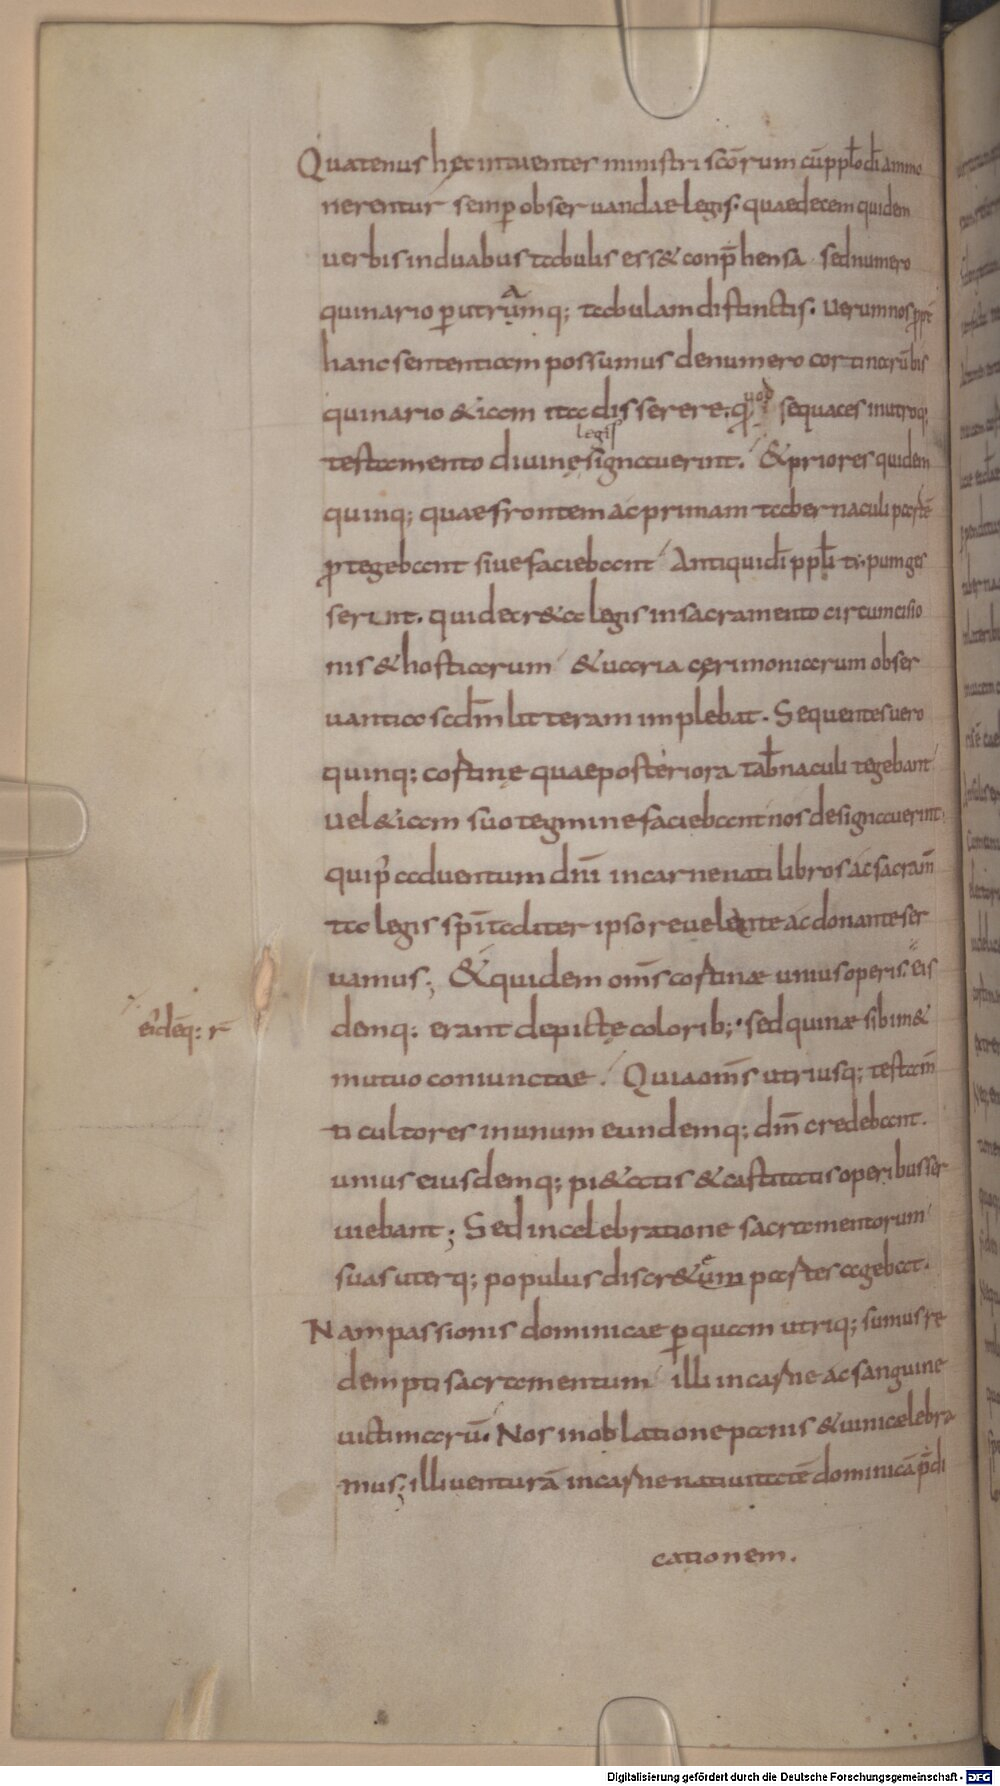 Quatenus hęc intuentes ministri scōrum cū pplo dī ammo
nerentur semp obseruandae legis. quae decem quidem
uerbis in duabus tabulis ess& conp̄hensa sed numero
quinario p utramq; tabulam distinctis. Uerum nos ppt
hanc sententiam possumus de numero cortinarū bis
quinario &iam ita disserere. quod sequaces in utroq;
legis
testamento diuinę signauerint. & priores quidem
quinq; quae frontem ac primam tabernaculi partē
ptegebant siue faciebant Antiqui dī ppli tipum ges
serunt. qui decr&a legis in sacramento circumcisio
nis & hostiarum & uaria cęrimoniarum obser
uantia scdm litteram implebat. Sequentes uero
quinq; cortinę quae posteriora tabnaculi tegebant
Uel &iam suo tegmine faciebant nos designauerint.
qui p̄ aduentum dn̄i in carne nati libros ac sacram̄
ta legis spītaliter ipso reuelante ac donante ser
uamus; & quidem om̄s cortinæ unius operis. eis
eisdēq: r
demq; erant depictę colorib; sed quinæ sibim&
mutuo coniunctae. Quia om̄s utriusq; testam̄
ti cultores in unum eundemq; dm̄ credebant.
unius eiusdemq; pi&atis & castitatis operibus ser
uiebant; Sed in celebratione sacramentorum
suas uterq; populus discr&um partes agebat.
Nam passionis dominicae p quam utriq; sumus re
dempti sacramentum illi in carne ac sanguine
uictimarū. Nos in oblatione panis & uini celebra
mus; illi uenturā in carne natiuitatē dominicā p̄di
cationem.
Digitalisierung gefördert durch die Deutsche Forschungsgemeinschaft - DFG